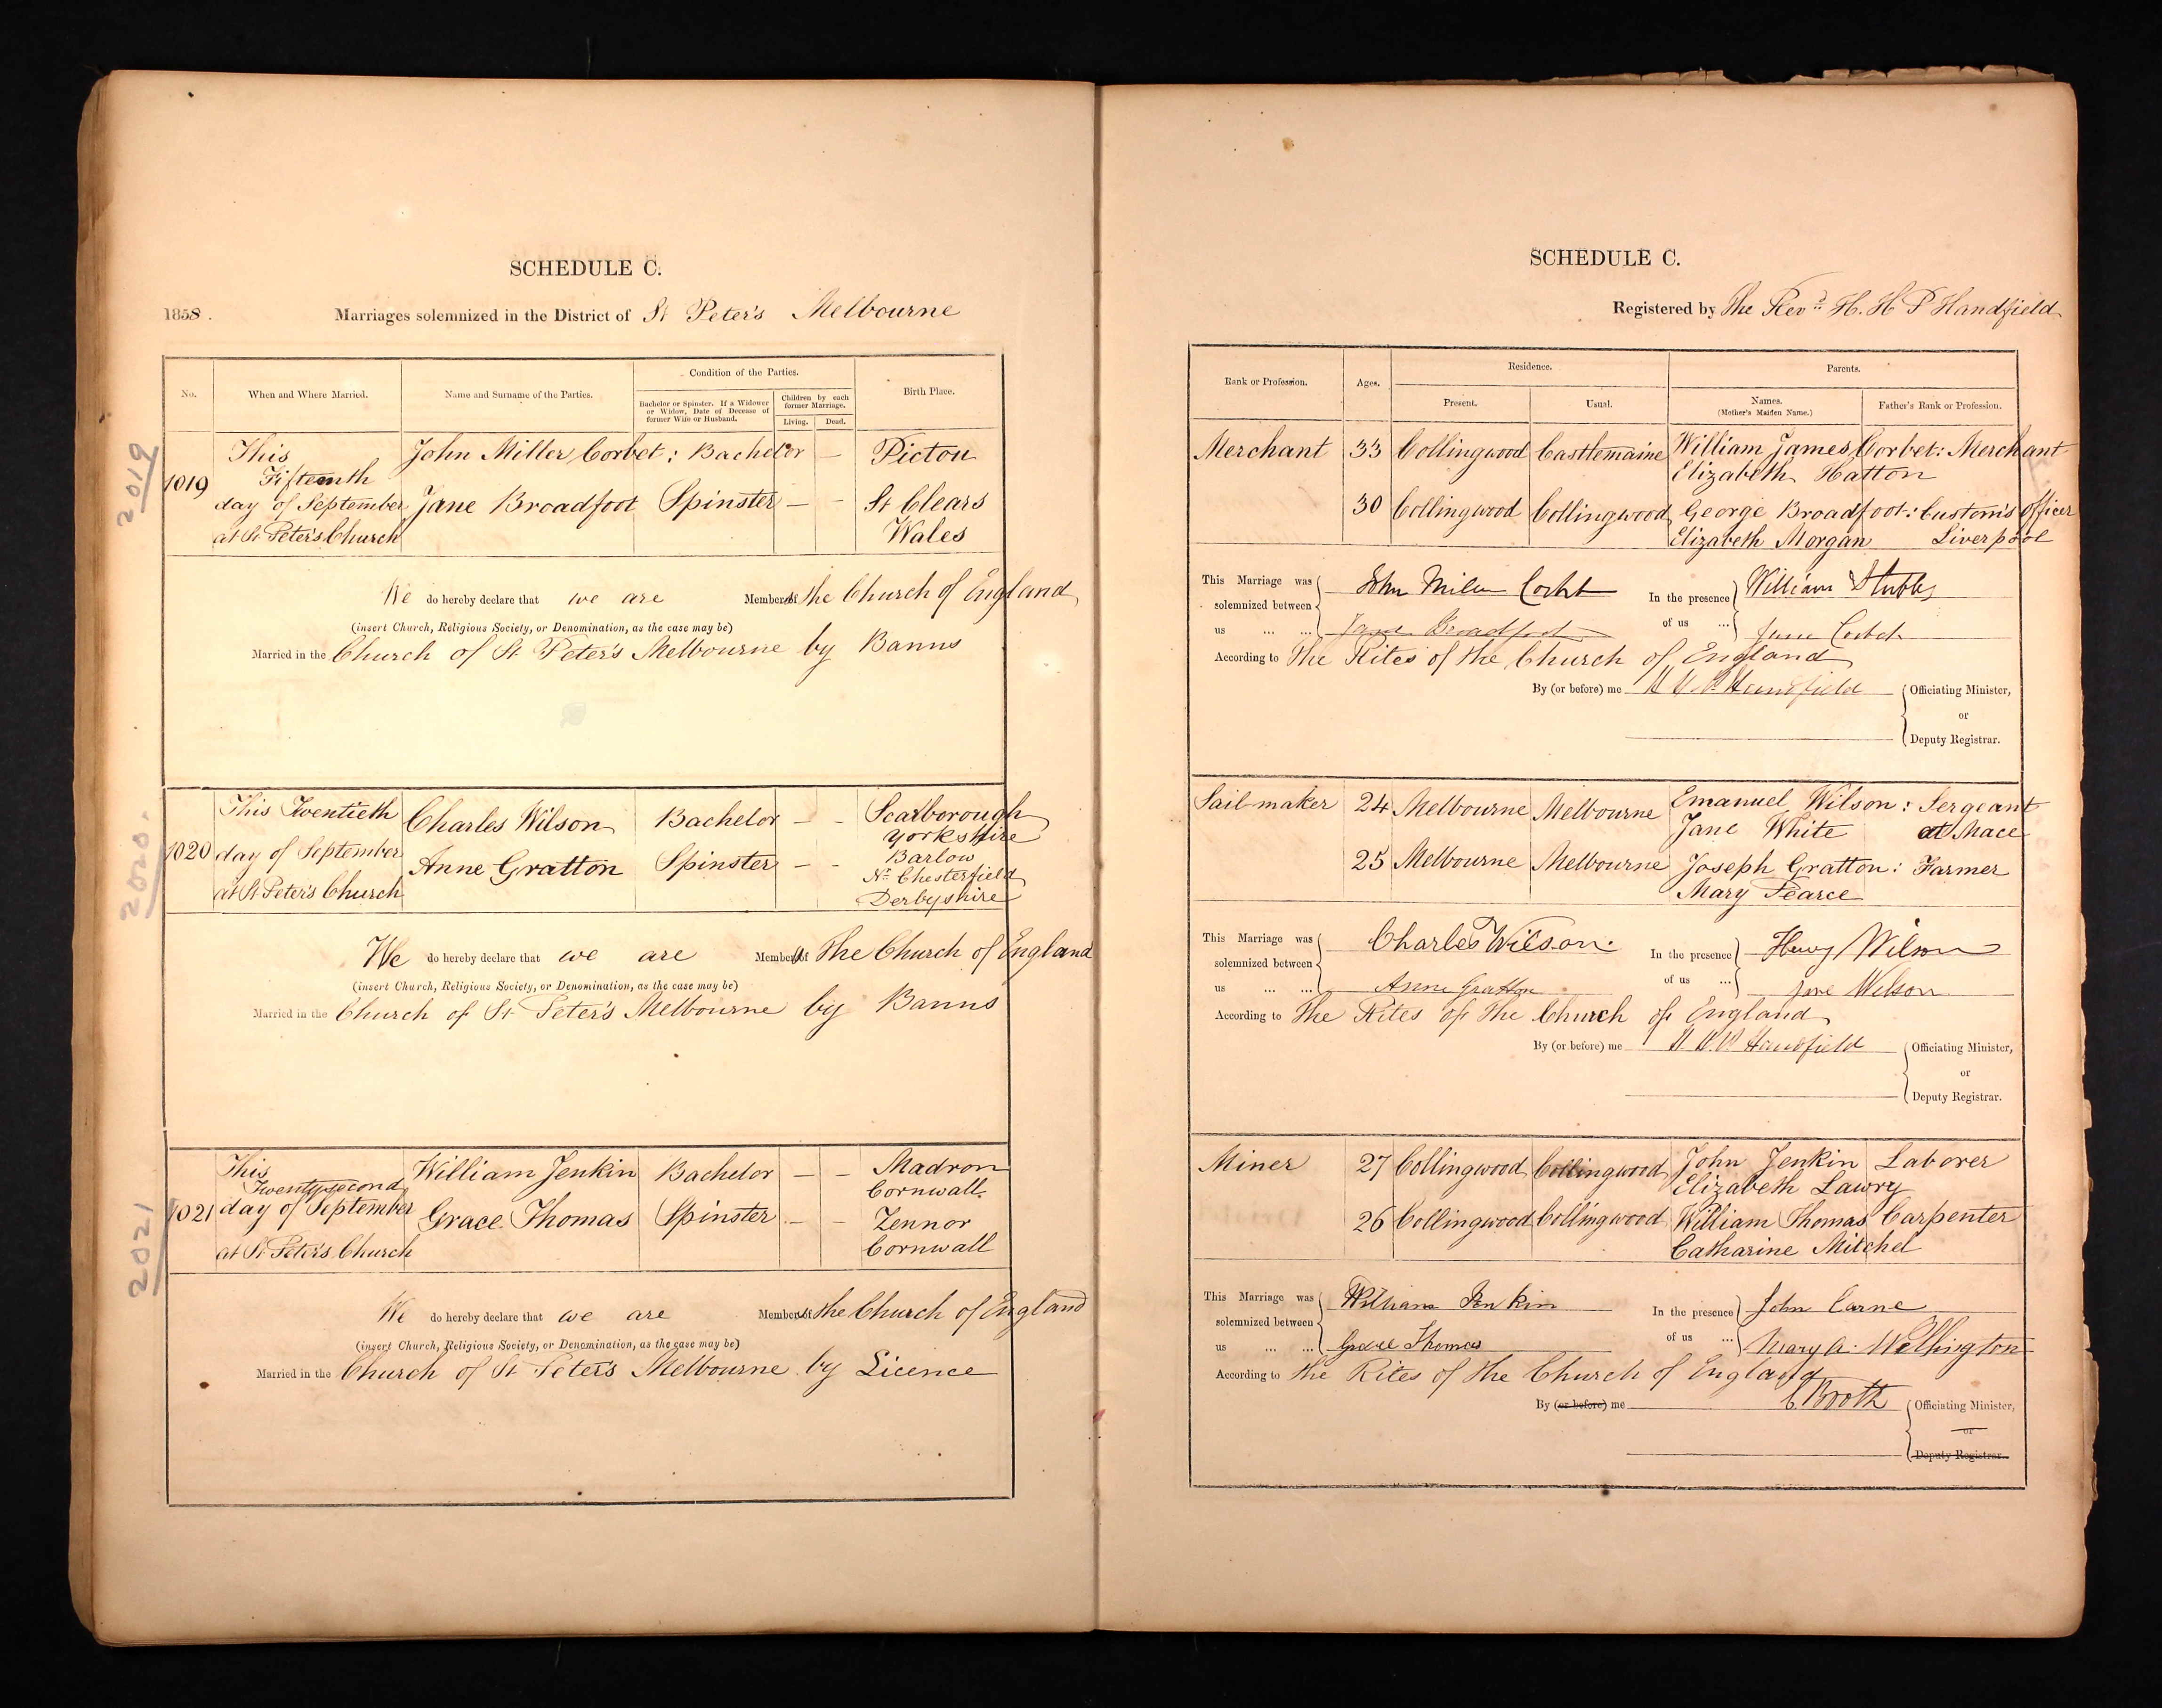 SCHEDULE C.
1858. Marriages solemnized in the District of St Peter's Melbourne
No. When and Where Married. Name and Surname of the Parties. Condition of the Parties. Birth Place.
Bachelor or Spinster. If a Widower or Widow, Date of Decease of former Wife or Husband. Children by each former Marriage.
Living. Dead.
2019
1019 This Fifteenth day of September at St Peter's Church
John Miller Corbet : Bachelor — Picton
Jane Broadfoot Spinster — - St Clears Wales
We do hereby declare that we are Members of the Church of England
(insert Church, Religious Society, or Denomination, as the case may be)
Married in the Church of St Peter's Melbourne by Banns
2020.
1020 This Twentieth day of September at St Peter's Church
Charles Wilson Bachelor — - Scarborough Yorkshire
Anne Gratton Spinster — - Barlow Nr Chesterfield Derbyshire
We do hereby declare that we are Members of the Church of England
(insert Church, Religious Society, or Denomination, as the case may be)
Married in the Church of St Peter's Melbourne by Banns
2021
1021 This Twenty second day of September at St Peter's Church
William Jenkin Bachelor — - Madron Cornwall
Grace Thomas Spinster - - Zennor Cornwall
We do hereby declare that we are Members of the Church of England
(insert Church, Religious Society, or Denomination, as the case may be)
Married in the Church of St Peter's Melbourne by Licence
SCHEDULE C.
Registered by The Revd. H. H P Handfield
Rank or Profession. Ages. Residence. Parents.
Present. Usual. Names. (Mother's Maiden Name.) Father's Rank or Profession.
Merchant 33 Collingwood Castlemaine William James Corbet : Merchant
Elizabeth Hatton
30 Collingwood Collingwood George Broadfoot : Custom's Officer
Elizabeth Morgan Liverpool
This Marriage was solemnized between us ... ... John Miller Corbet
Jane Broadfoot
In the presence of us ... William Stubbs
Jane Corbet
According to The Rites of the Church of England
By (or before) me H H P Handfield Officiating Minister,
or
Deputy Registrar.
Sail maker 24 Melbourne Melbourne Emanuel Wilson : Sergeant
Jane White at Mace
25 Melbourne Melbourne Joseph Gratton : Farmer
Mary Pearce
This Marriage was solemnized between us ... ... Charles Wilson.
Anne Gratton
In the presence of us ... Henry Wilson
Jane Wilson
According to The Rites of the Church of England
By (or before) me H. H. P. Handfield Officiating Minister,
or
Deputy Registrar.
Miner 27 Collingwood Collingwood John Jenkin Laborer
Elizabeth Lawry
26 Collingwood Collingwood William Thomas Carpenter
Catharine Mitchel
This Marriage was solemnized between us ... ... William Jenkin
Grace Thomas
In the presence of us ... John Carne
Mary A. Wellington
According to The Rites of the Church of England
By (or before) me C Booth Officiating Minister,
or
Deputy Registrar.